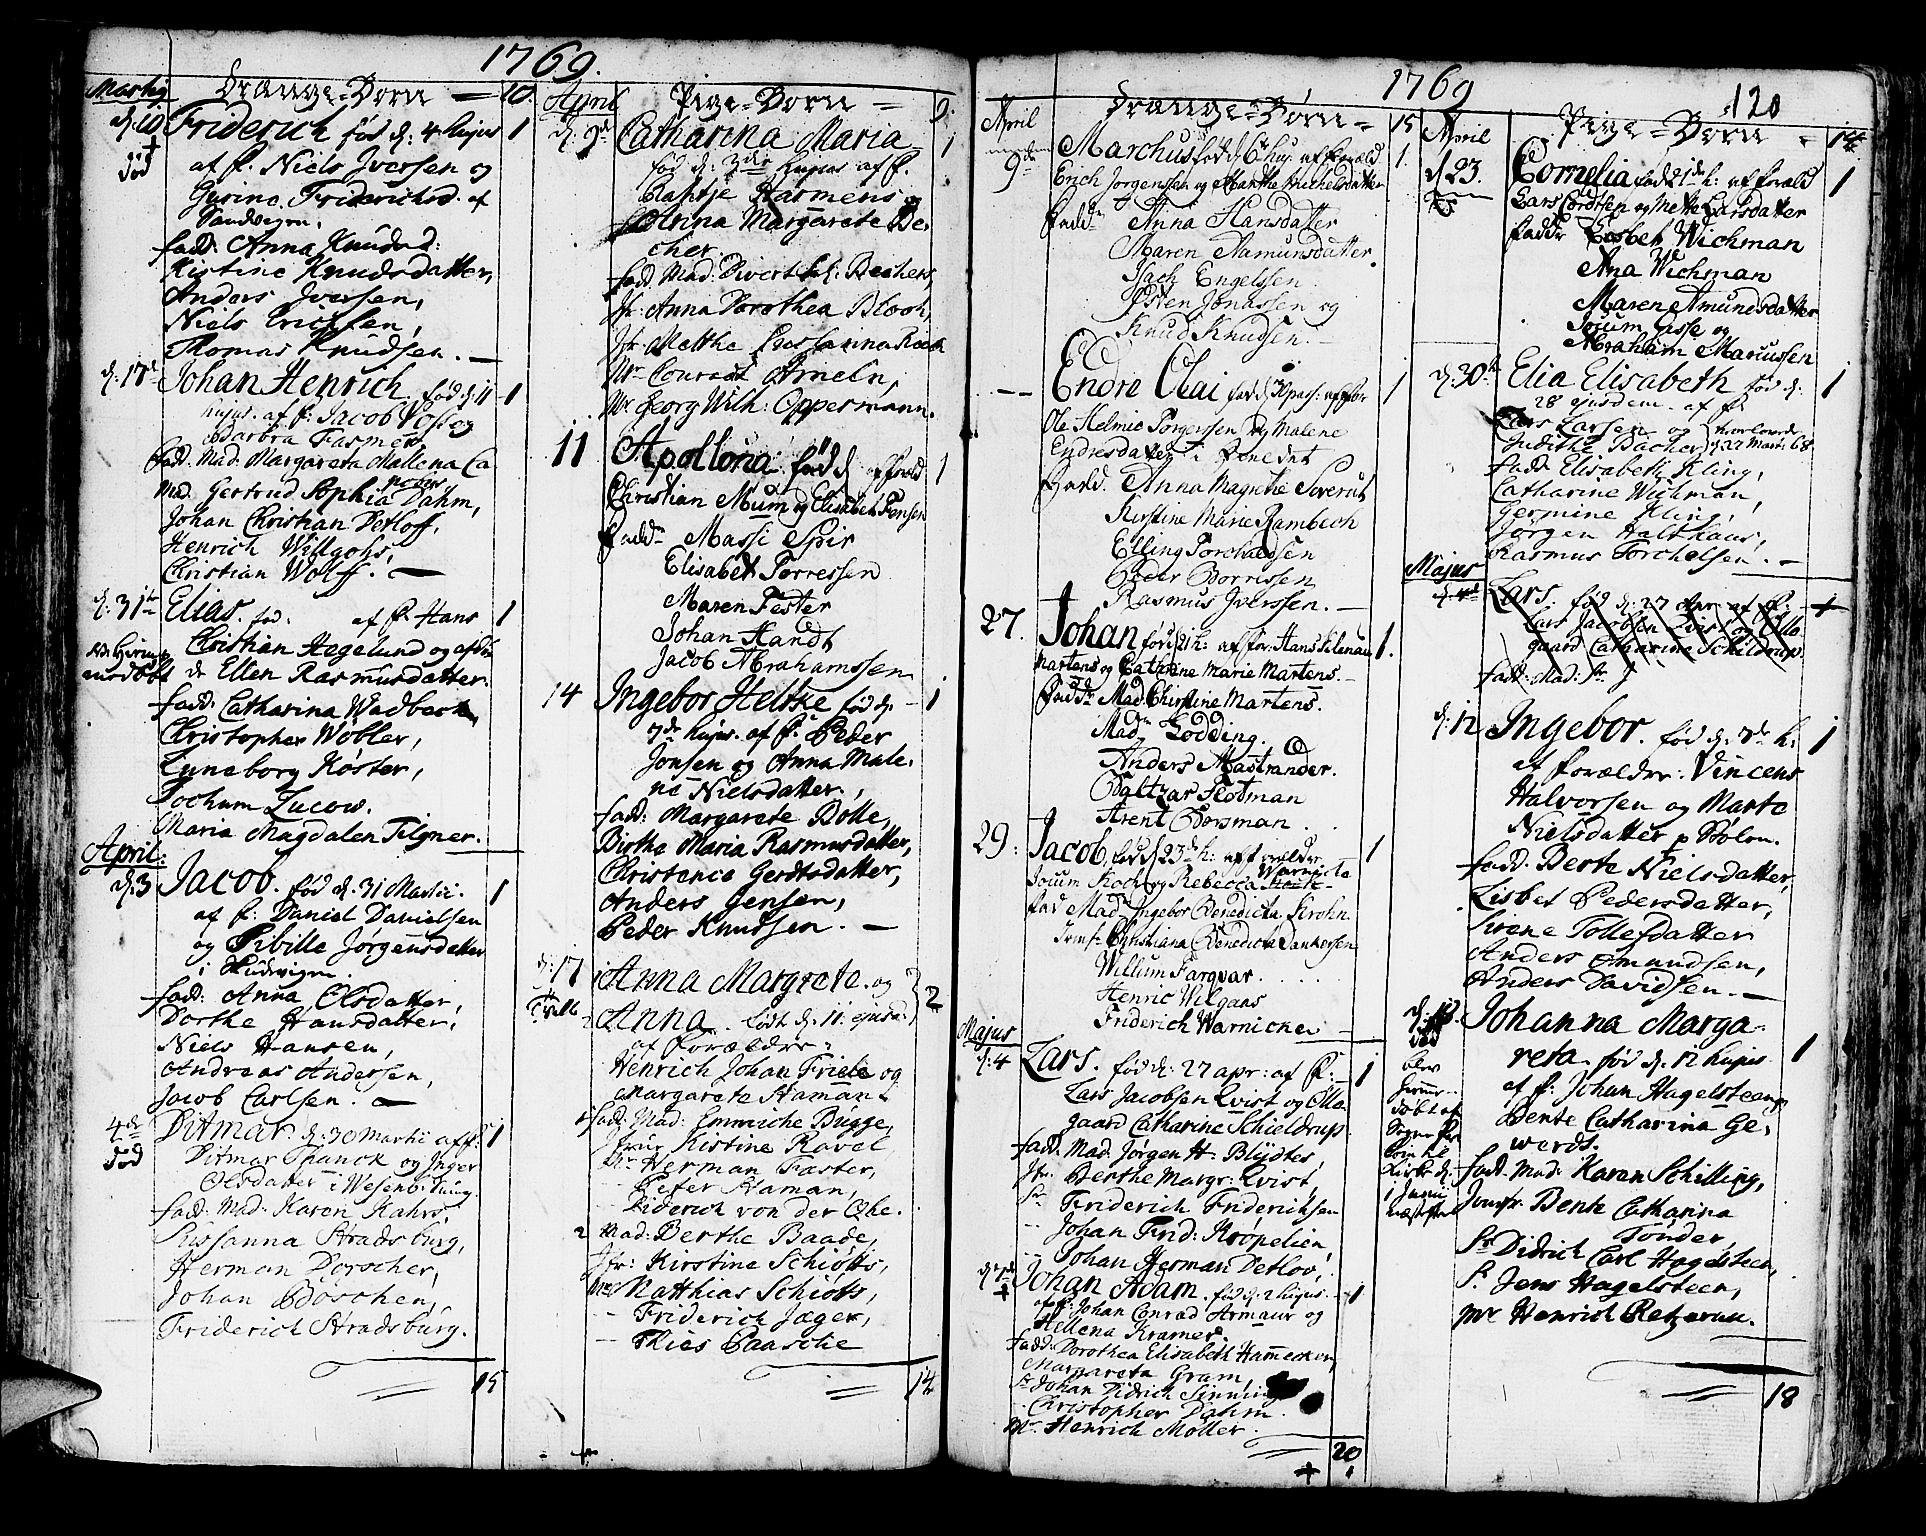 1769.
Martij Drænge-Børn 10.
d: 10 Friderich fød d: 4 hujus 1
† død
af f. Niels Iversen og
Gurine Friderichsd. af
Sandvigen.
fadd: Anna Knudsd:
Kistine Knudsdatter,
Anders Iversen,
Niels Ericksen,
Thomas Knudsen.
d: 17de Johan Henrich, fød d: 11 1
hujus. af f: Jacob Voss og
Barbra Fasmer
fadd. Mad. Margareta Mallena Ca
Mad. Gertrud Sophia Dahm,
Johan Christian Detloff,
Henrich Willgohs,
Christian Wolff.
d: 31te Elias. fød: af f: Hans 1
Christian Hegelund og
Ellen Rasmusdatter.
fadd: Catharina Wadbeck,
Christopher Wöbler,
Luneborg Köster,
Jochum Lucow.
Maria Magdalen Tilgner.
April.
d: 3 Jacob. fød d: 31 Martii. 1
af f: Daniel Danielsen
og Sibille Jørgensdatter
i Skudvigen.
fadd: Anna Olsdatter,
Dorthe Hansdatter,
Niels Hansen,
Andreas Andersen,
Jacob Carlsen.
4de Ditmar. d: 30 Martii af f: 1
død
Ditmar Spanck og Inger
Olsdatter i Wesenb:
fadd: Mad: Karen Kahrs,
Susanna Stradsburg,
Herman Dorscher,
Johan Boschen,
Friderich Stradsburg.
15
April Pige-Børn 9.
d: 9de Catharina Maria 1
fød d: 3die hujus af f.
Harmens
Anna Margarete Be-
cher
fadd Mad: Divert Sal: Bechers,
Jfr: Anna Dorothea Blooh,
Jfr: Metthe
Mr Conradt Ameln,
Mr Georg Wilh: Oppermann.
11 Apollona fød d af foræld 1
Christian Mum og Elisabet Jensen
Fadd: Massi Spir
Elisabet Torressen
Maren Fester
Johan Handt
Jacob Abrahamssen
14 Ingebor Heltke fød d. 1
7de hujus. af f. Peder
Jonsen og Anna Male-
ne Nielsdatter,
fadd: Margarete Bolle,
Birthe Maria Rasmusdatter,
Christence Gerdtsdatter,
Anders Jensen,
Peder Knudsen.
d: 17 Anna Margrete. og 2
Anna. født d: 11 ejusd:
af Forældre:
Henrich Johan Friele og
Margarete Haman.
fadd: Mad: Emmiche Bugge,
Kistine Ravel
Herman Faster,
Peter Haman,
Diderich von der Ohe.
2 Mad: Berthe Baade,
Jfr: Kirstine Schiøtts,
Mr Matthias Schiøtts,
Friderich Jæger,
Thies Paasche
14
1769
April Drænge-Børn 15
9de Marchus fød d 6 huj. af foræld 1.
Erich Jørgenssen og Marthe Michelsdatter
Fadd: Anna Hansdatter
Maren Aamundsdatter.
Isach Engelssen
Østen Jonassen og
Knud Knudsen.
Endre Olai fød d 30 pass. af for 1
Ole Helmic Torgerssen og Malene
Endresdatter i
Fadd. Anna Magrethe Soverut
Kirstine Marie Rambech
Elling Torchildsen
Peder Borrissen
Rasmus Iverssen.
27. Johan fød d 21 h: af for: Hans Silenau 1.
Martens og Cathrine Marie Martens.
Fadd: Mad Christine Martens.
Mad: Lodding.
Anders Mastrander.
Baltzar Flotman
Arent Borsman
29. Jacob, fød d 23de h: af forælder 1
Jorum Koch og Rebecca Warnicke
Fad Mad: Ingebor Benedicta Krohn
Jomfr Christiana Benedicta Danckersen
Willum Farqvar.
Henric Wilgaas
Friderich Warnicke
Majus
d: 4 Lars. fød d: 27 apr: af f: 1
Lars Jacobsen Qvist og Olle-
gaard Catharine Schieldrup.
fadd: Mad. Jørgen H. Blydtes,
Jfr. Berthe Margr: Qvist,
Sr. Friderich Frideriksen
Johan Frid: Krøpelien,
Johan Herman Detlov,
Johan Adam. fød d. 2 hujus. 1
af f: Johan Conrad Armaur og
Hellena Kramer.
fadd: Dorothea Elisabeth Hammecker,
Margareta Gram,
Sr Johan Didrich Sinning
Christopher Dahm.
Mr. Henrich Moller.
20
120
April Pige-Børn 14
d 23. Cornelia fød d 21de h: af foræld 1
Lars Cordtsen og Mette Larsdatter
Fadd: Lisbet Wichman
Ana Wichman
Maren Amundsdatter
Jorum Gasse og
Abraham Mariussen
d: 30te Elia Elisabeth fød d: 1
28 ejusdem. af f:
Lars Larsen og
Judithe Bacher
fadd: Elisabeth Kling,
Catharine Wichman,
Germine Kling,
Jørgen Halthaus,
Rasmus Torchelsen.
Majus
d: 4de Lars. fød d: 27 apr: af f:
Lars Jacobsen Qvist og Olle-
gaard Catharina Schildrup.
fadd: Mad:
d: 12 Ingebor. fød d: 7de h: 1
af forældre: Vincens
Halvorsen og Marte
Nielsdatter p Stolen.
fadd: Berte Nielsdatter,
Lisbet Pedersdatter,
Sirene Tollefsdatter
Anders Omundsen,
Anders Davidsen.
Johanna Marga- 1
reta. fød d: 12 hujus
af f: Johan Hagelsteen og
Bente Catharina Ge-
werds.
død
blev
hjemme
døbt
fadd: Mad: Karen Schilling,
Jomfr: Bente Catharina
Tønder,
Sr Didrich Carl Hagelsteen,
Sr. Jens Hagelsteen,
Mr Henrich Retzerau.
18